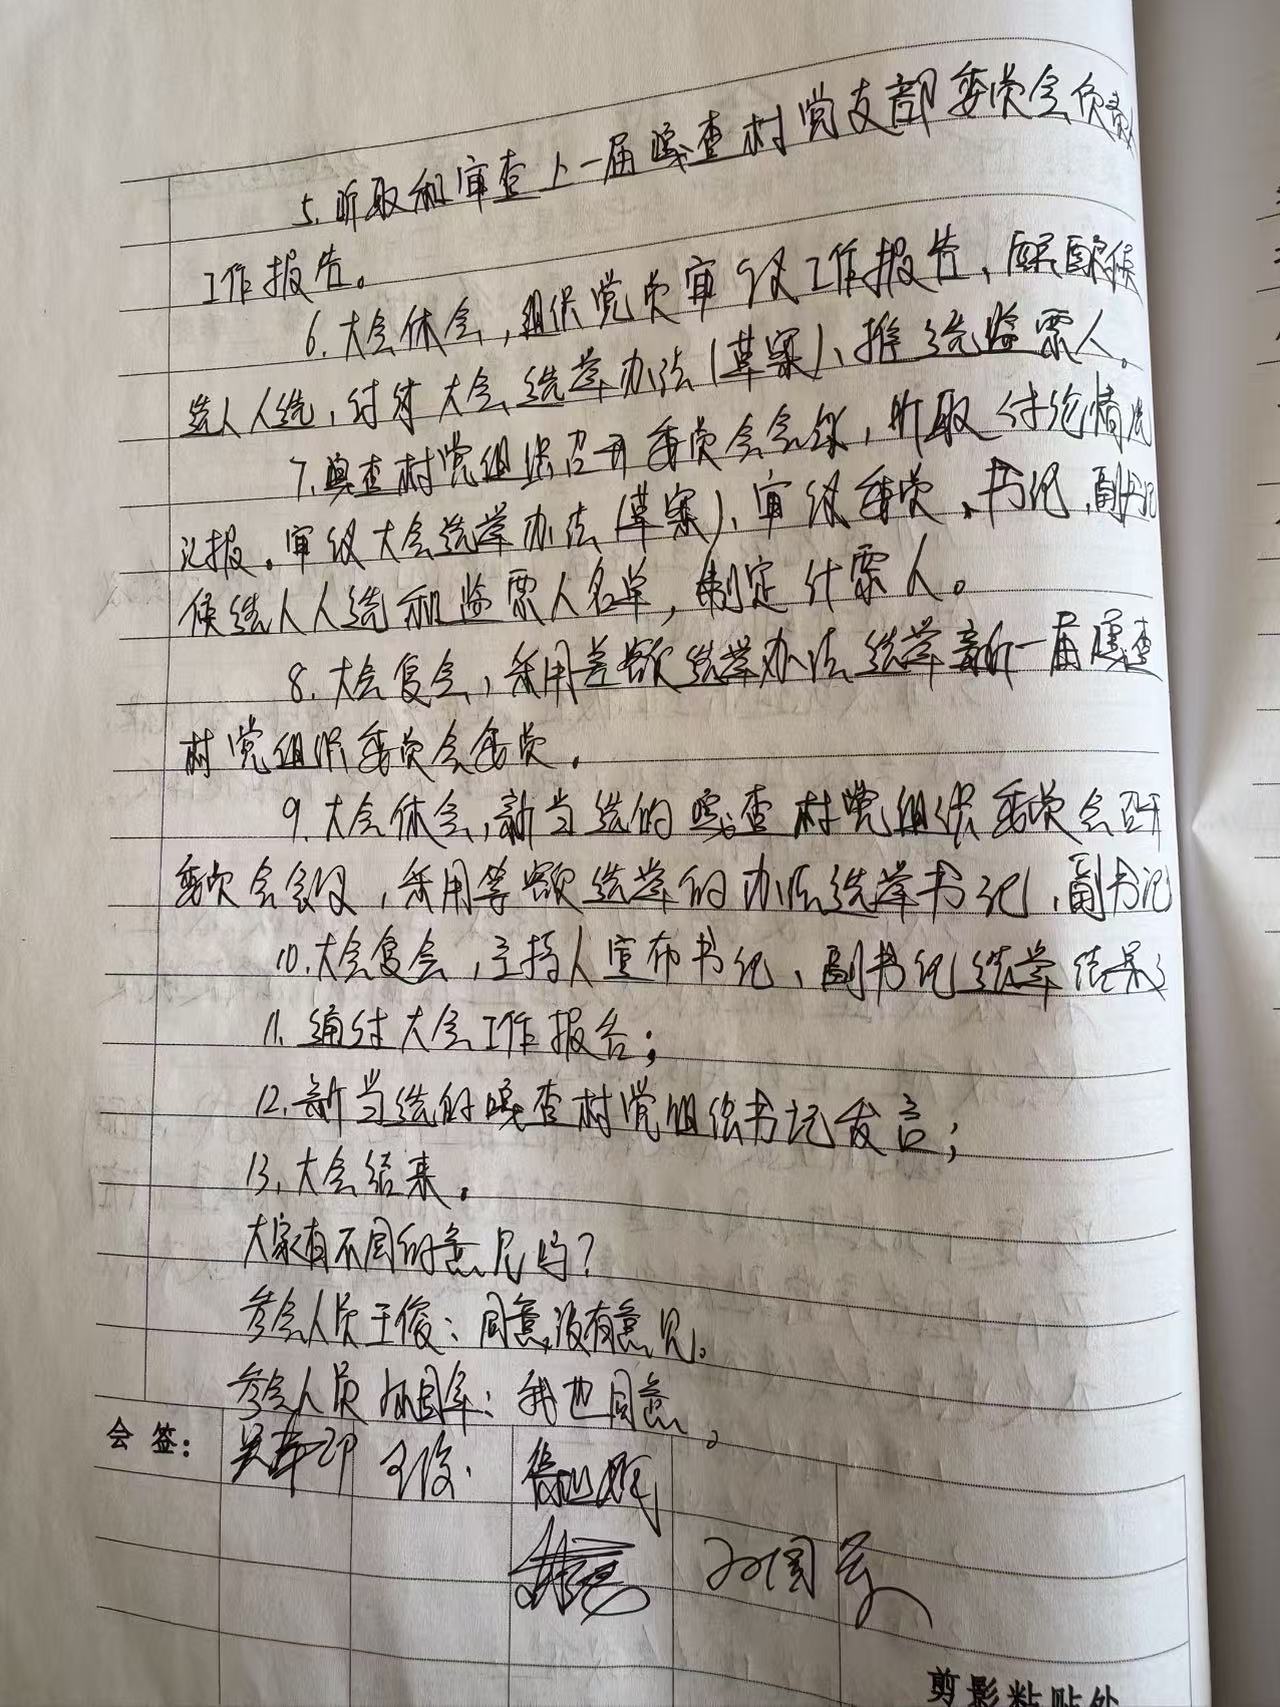 5. 听取和审查上一届嘎查村党支部委员会负责人
工作报告。
6. 大会休会，组织党员审议工作报告、酝酿候
选人人选，讨论大会选举办法（草案）、推选监票人。
7. 嘎查村党组织召开委员会会议，听取讨论情况
汇报。审议大会选举办法（草案）、审议委员、书记、副书记
候选人人选和监票人名单，制定计票人。
8. 大会复会，采用差额选举办法选举新一届嘎查
村党组织委员会委员。
9. 大会休会，新当选的嘎查村党组织委员会召开
委员会会议，采用等额选举的办法选举书记、副书记
10. 大会复会，主持人宣布书记、副书记选举结果；
11. 通过大会工作报告；
12. 新当选的嘎查村党组织书记发言；
13. 大会结束。
大家有不同的意见吗？
参会人员王俊：同意，没有意见。
参会人员孙国军：我也同意。
会签： 王俊
孙国军
剪影粘贴处